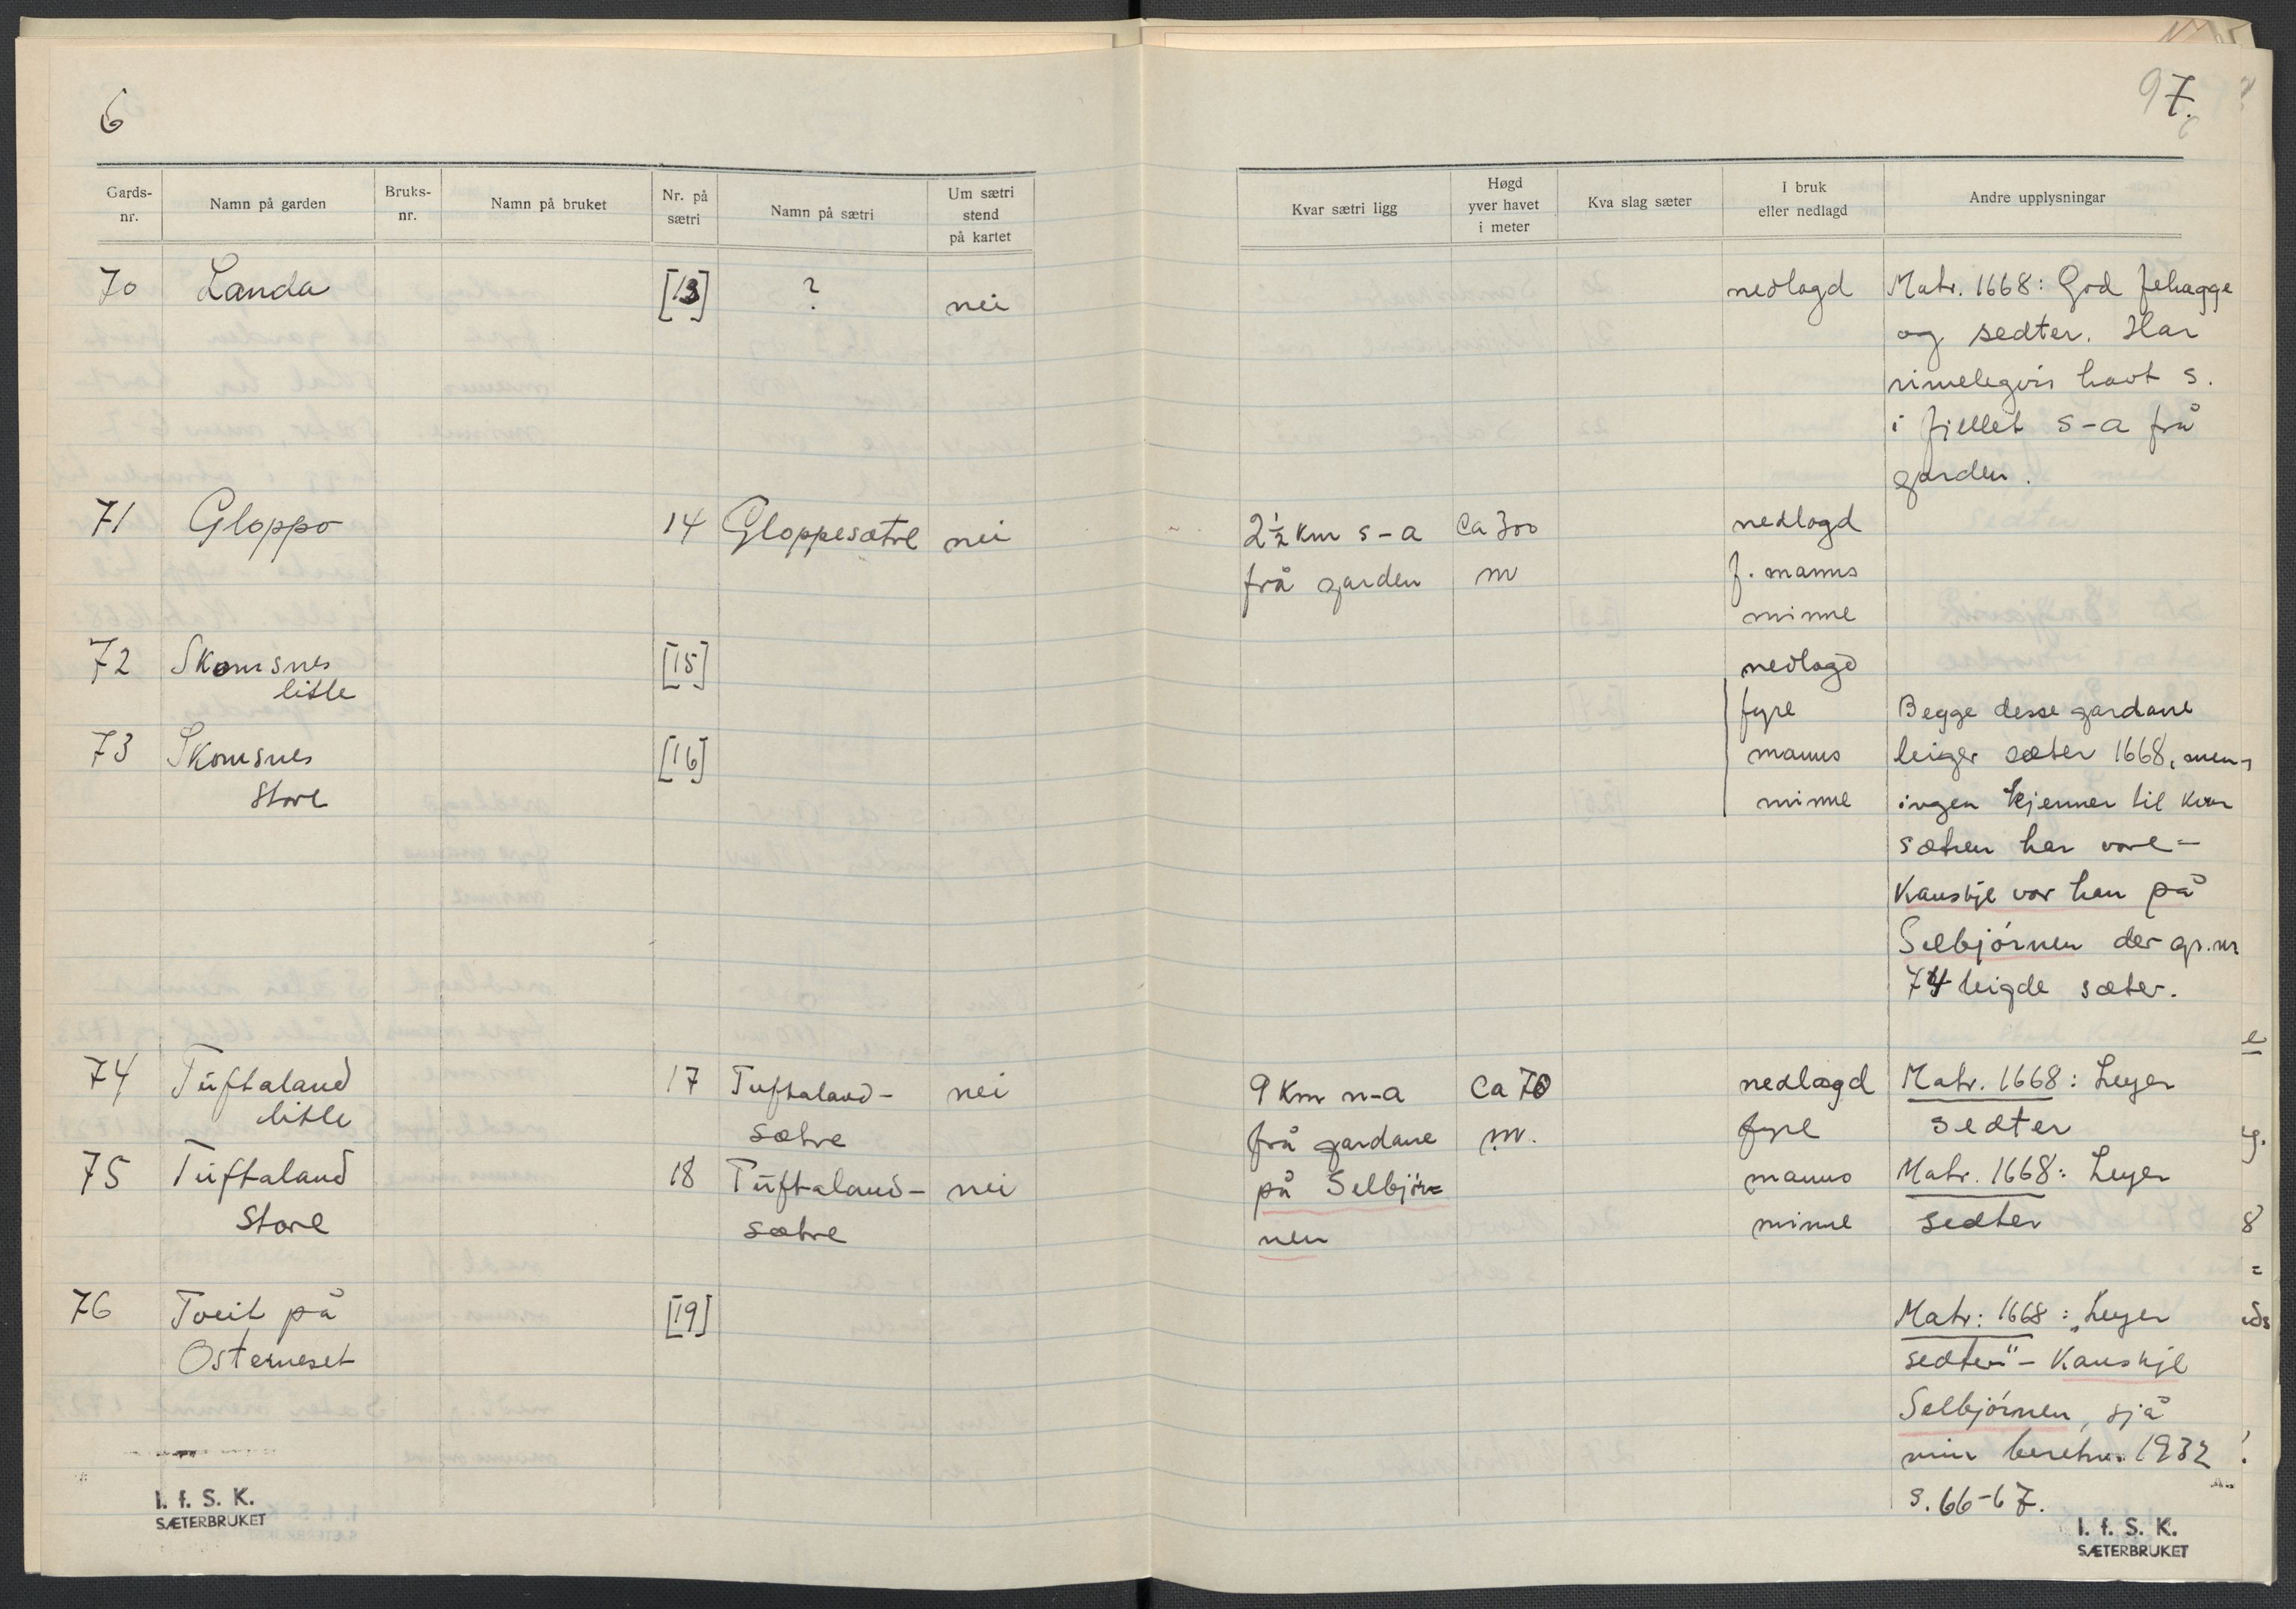 6
97.
Gards-nr. Namn på garden Bruks-nr. Namn på bruket Nr. på sætri Namn på sætri Um sætri stend på kartet Kvar sætri ligg Høgd yver havet i meter Kva slag sæter I bruk eller nedlagd Andre upplysningar
70 Landa [13] ? nei nedlagd Matr. 1668: God fehagge
og sedter. Har
rimelegvis havt s.
i fjellet s-a frå
garden.
71 Gloppo 14 Gloppesætre nei 2½ km s-a Ca 300 nedlagd
frå garden m f. manns
minne
72 Skomsnes [15] nedlagd
litle fyre Begge desse gardane
73 Skomsnes [16] manns leiger sæter 1668, men
Store minne ingen kjenner til kvar
sætren har vore -
Kanskje var han på
Selbjörnen der gr. nr
74 leigde sæter.
74 Tuftaland 17 Tuftaland- nei 9 Km n-a Ca 70 nedlagd Matr. 1668: Leyer
litle sætre frå gardane m. fyre sedter
75 Tuftaland 18 Tuftaland- nei på Selbjör= manns Matr. 1668: Leyer
Store sætre nen minne sedter
76 Tveit på [19] Matr: 1668: „Leyer
Osterneset sedter" - Kanskje
Selbjörnen, sjå
min beretn. 1932
s. 66-67.
I. f. S. K.
SÆTERBRUKET
I. f. S. K.
SÆTERBRUKET